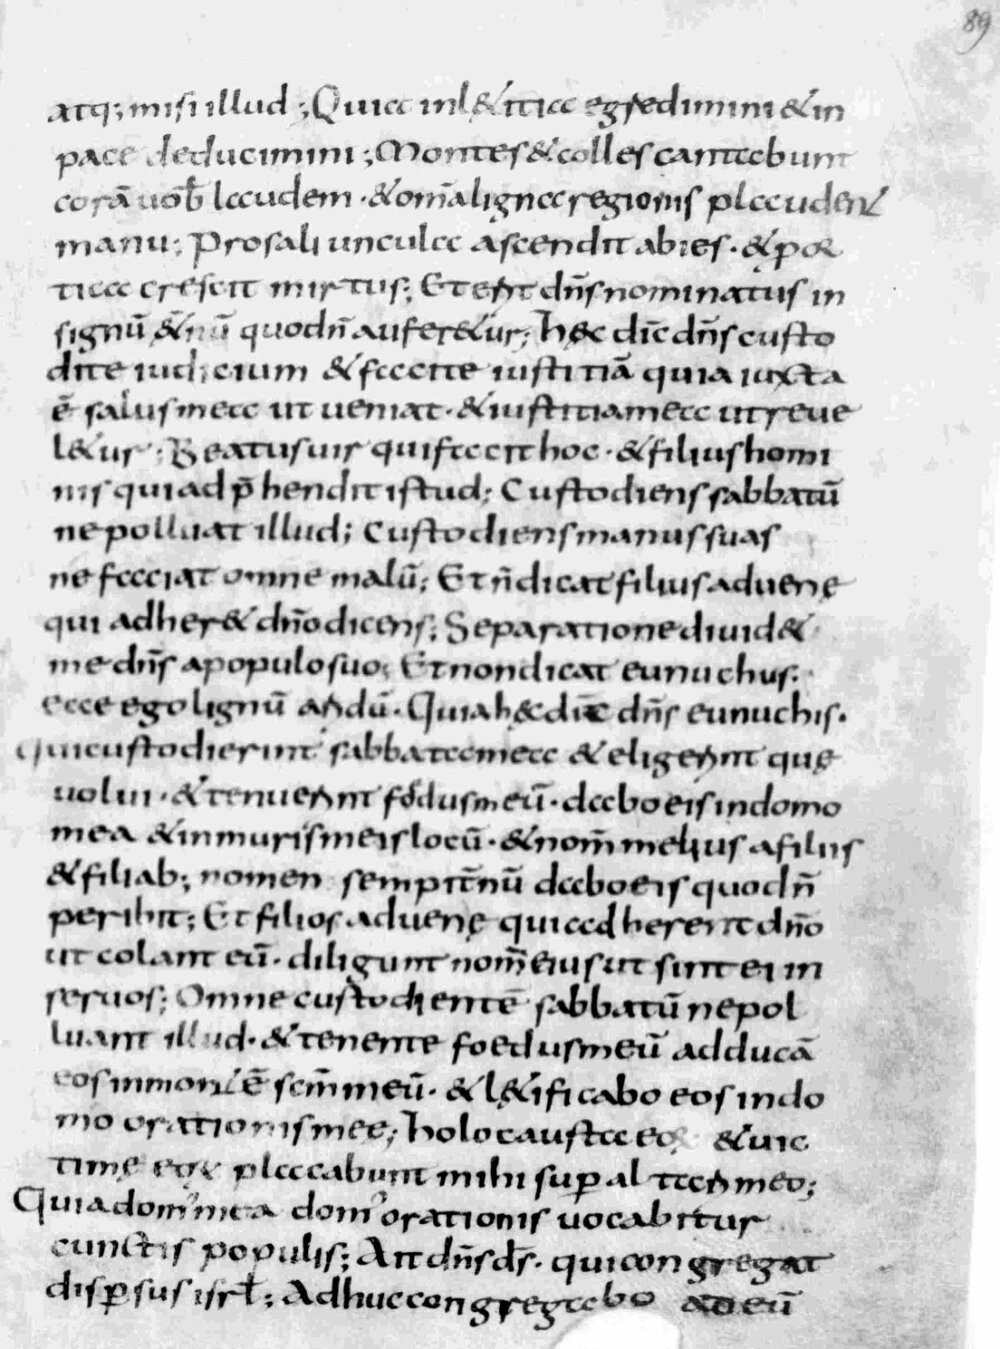 89
atq; misi illud; Quia in l&itia egredimini & in
pace deducimini; Montes & colles cantabunt
corā uob̄ laudem · & om̄a ligna regionis plaudent
manu; Pro saliuncula ascendit abies · & p̱ or
tica crescit mirtus; Et erit dn̄s nominatus in
signū &nū quod n̄ auferetur; hęc dic̄ dn̄s custo
dite iudicium & facite iustitiā quia iuxta
ē salus mea ut ueniat · & iustitia mea ut reue
l&ur; Beatus uir qui facit hoc · & filius homi
nis qui adp̄hendit istud; Custodiens sabbatū
ne polluat illud; custodiens manus suas
ne faciat omne malū; Et n̄ dicat filius aduenę
qui adher& dn̄o dicens; Separatione diuid&
me dn̄s a populo suo; Et non dicat eunuchus;
ecce ego lignū aridū · Quia hęc dic̄ dn̄s eunuchis ·
Qui custodierint sabbata mea & eligerint quę
uolui · & tenuerint foedus meū · dabo eis in domo
mea & in muris meis locū · & nom̄ melius a filiis
& filiab; nomen sempit̄nū dabo eis quod n̄
peribit; Et filios aduenę qui adherent dn̄o
ut colant eū · diligunt nom̄ eius ut sint ei in
seruos; Omne custodientē sabbatū ne pol
luant illud · & tenente foedus meū adducā
eos in montē scm̄ meū · & l&ificabo eos in do
mo orationis mee; holocausta eoꝝ & uic
timę eoꝝ placabunt mihi sup̱ altari meo;
Quia dom' mea dom' orationis uocabitur
cunctis populis; Ait dn̄s ds̄ · qui congregat
disp̱sus isrl̄; Adhuc congregabo ad eū